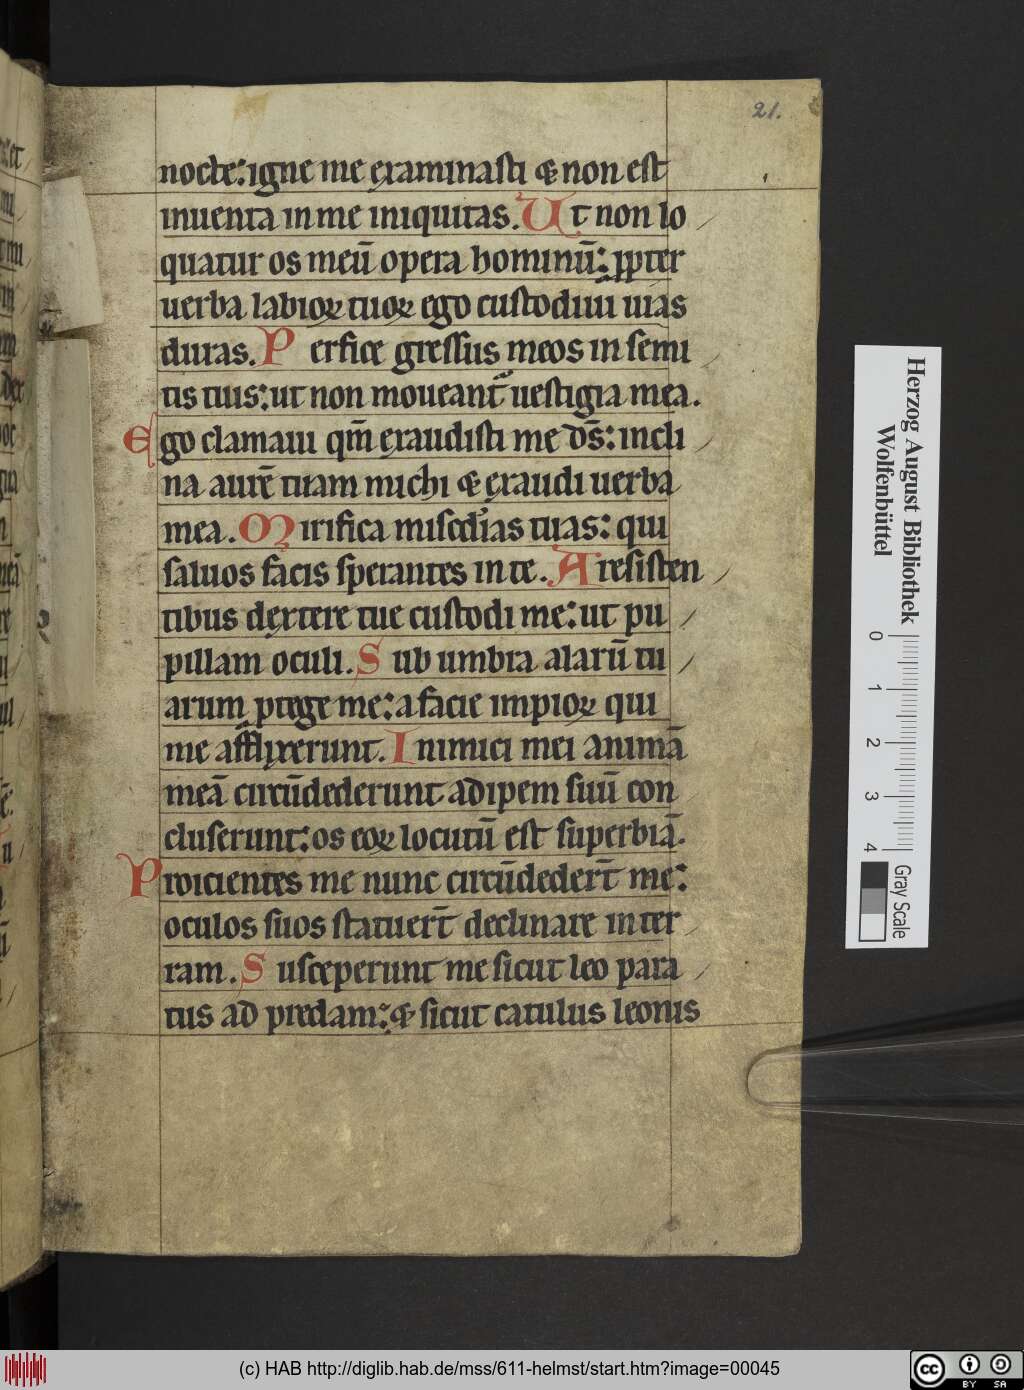 21.
nocte: igne me examinasti & non est
inuenta in me iniquitas. Vt non lo
quatur os meū opera hominū: ꝓpter
uerba labioꝝ tuoꝝ ego custodiui uias
duras. Perfice gressus meos in semi
tis tuis: ut non moueant᷑ uestigia mea.
Ego clamaui qm̄ exaudisti me ds̄: incli
na aurē tuam michi & exaudi uerba
mea. Mirifica miscd'ias tuas: qui
saluos facis sperantes in te. A resisten
tibus dextere tue custodi me: ut pu
pillam oculi. Sub umbra alarū tu
arum ꝓtege me: a facie impioꝝ qui
me afflixerunt. Inimici mei animā
meā circūdederunt adipem suū con
cluserunt: os eoꝝ locutū est superbiā.
Proicientes me nunc circūdeder̄t me:
oculos suos statuer̄t declinare in ter
ram. Susceperunt me sicut leo para
tus ad predam: & sicut catulus leonis
Herzog August Bibliothek
Wolfenbüttel
0 1 2 3 4
Gray Scale
(c) HAB http://diglib.hab.de/mss/611-helmst/start.htm?image=00045
cc BY SA